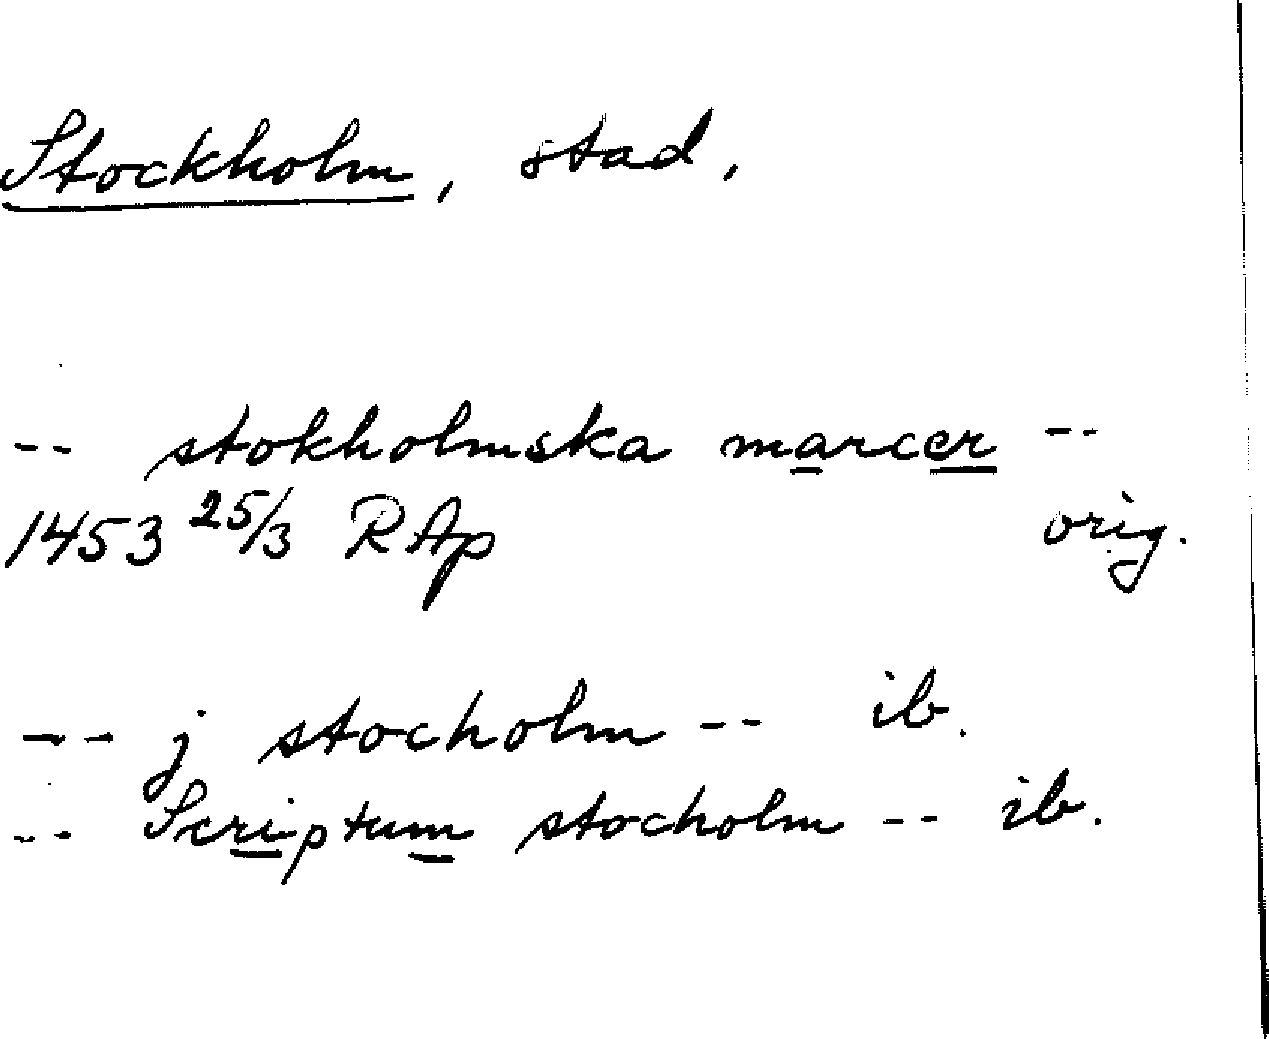 Stockholm, stad,
-- stokholmska marcer --
1453 25/3 RAp orig.
-- j stocholm -- ib.
-- Scriptum stocholm -- ib.